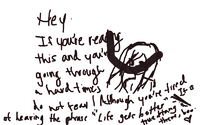 Hey.
If you're reading
this and you're
going through
hard times
do not fear! Although you're tired
of hearing the phrase "Life gets better"
true
there,